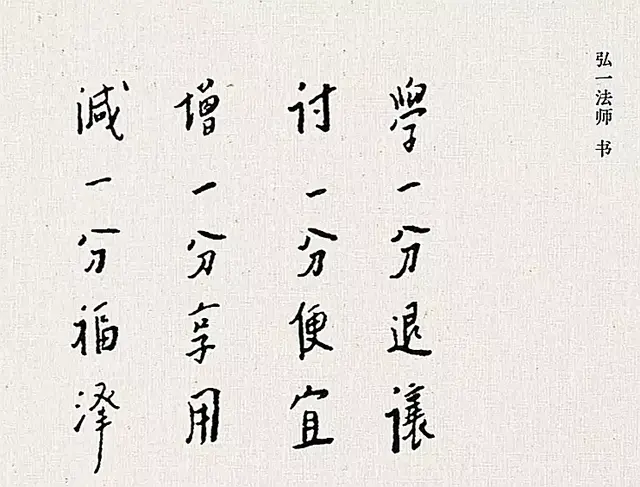 弘一法师 书
學一分退讓
討一分便宜
增一分享用
減一分福泽